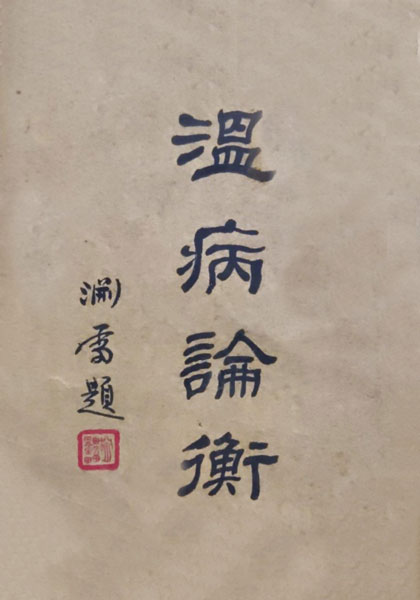 溫病論衡
淵雷題